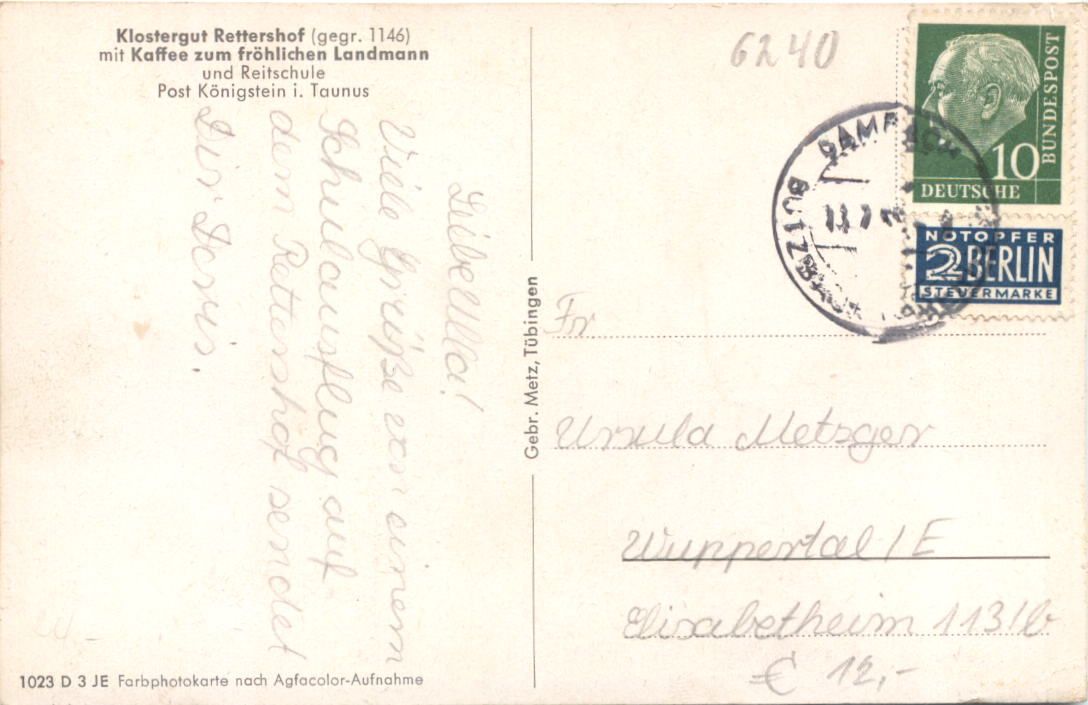 Klostergut Rettershof (gegr. 1146)
mit Kaffee zum fröhlichen Landmann
und Reitschule
Post Königstein i. Taunus
Liebe Ulla!
Viele Grüße von einem
Schulausflug auf
dem Rettershof sendet
Dir Doris.
1023 D 3 JE Farbphotokarte nach Agfacolor-Aufnahme
Gebr. Metz, Tübingen
6240
DEUTSCHE
BUNDESPOST
10
NOTOPFER
2 BERLIN
STEUERMARKE
Frl
Ursula Metzger
Wuppertal / E
Elisabetheim 113/b
€ 12,-